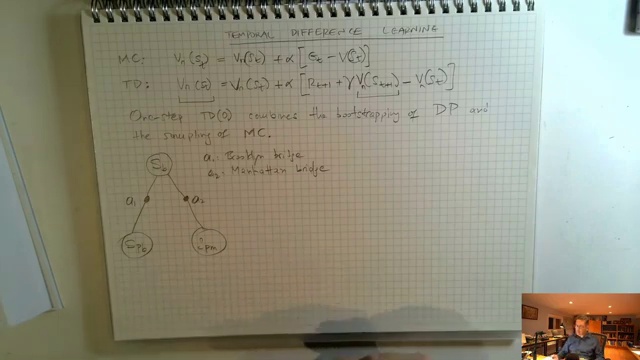 TEMPORAL DIFFERENCE LEARNING
MC: Vπ(St) = Vπ(St) + α [Gt − V(St)]
TD: Vπ(St) = Vπ(St) + α [Rt+1 + γ Vπ(St+1) − Vπ(St)]
One-step TD(0) combines the bootstrapping of DP and
the sampling of MC.
a1: Brooklyn bridge
a2: Manhattan bridge
Sb
a1 a2
Spb Spm